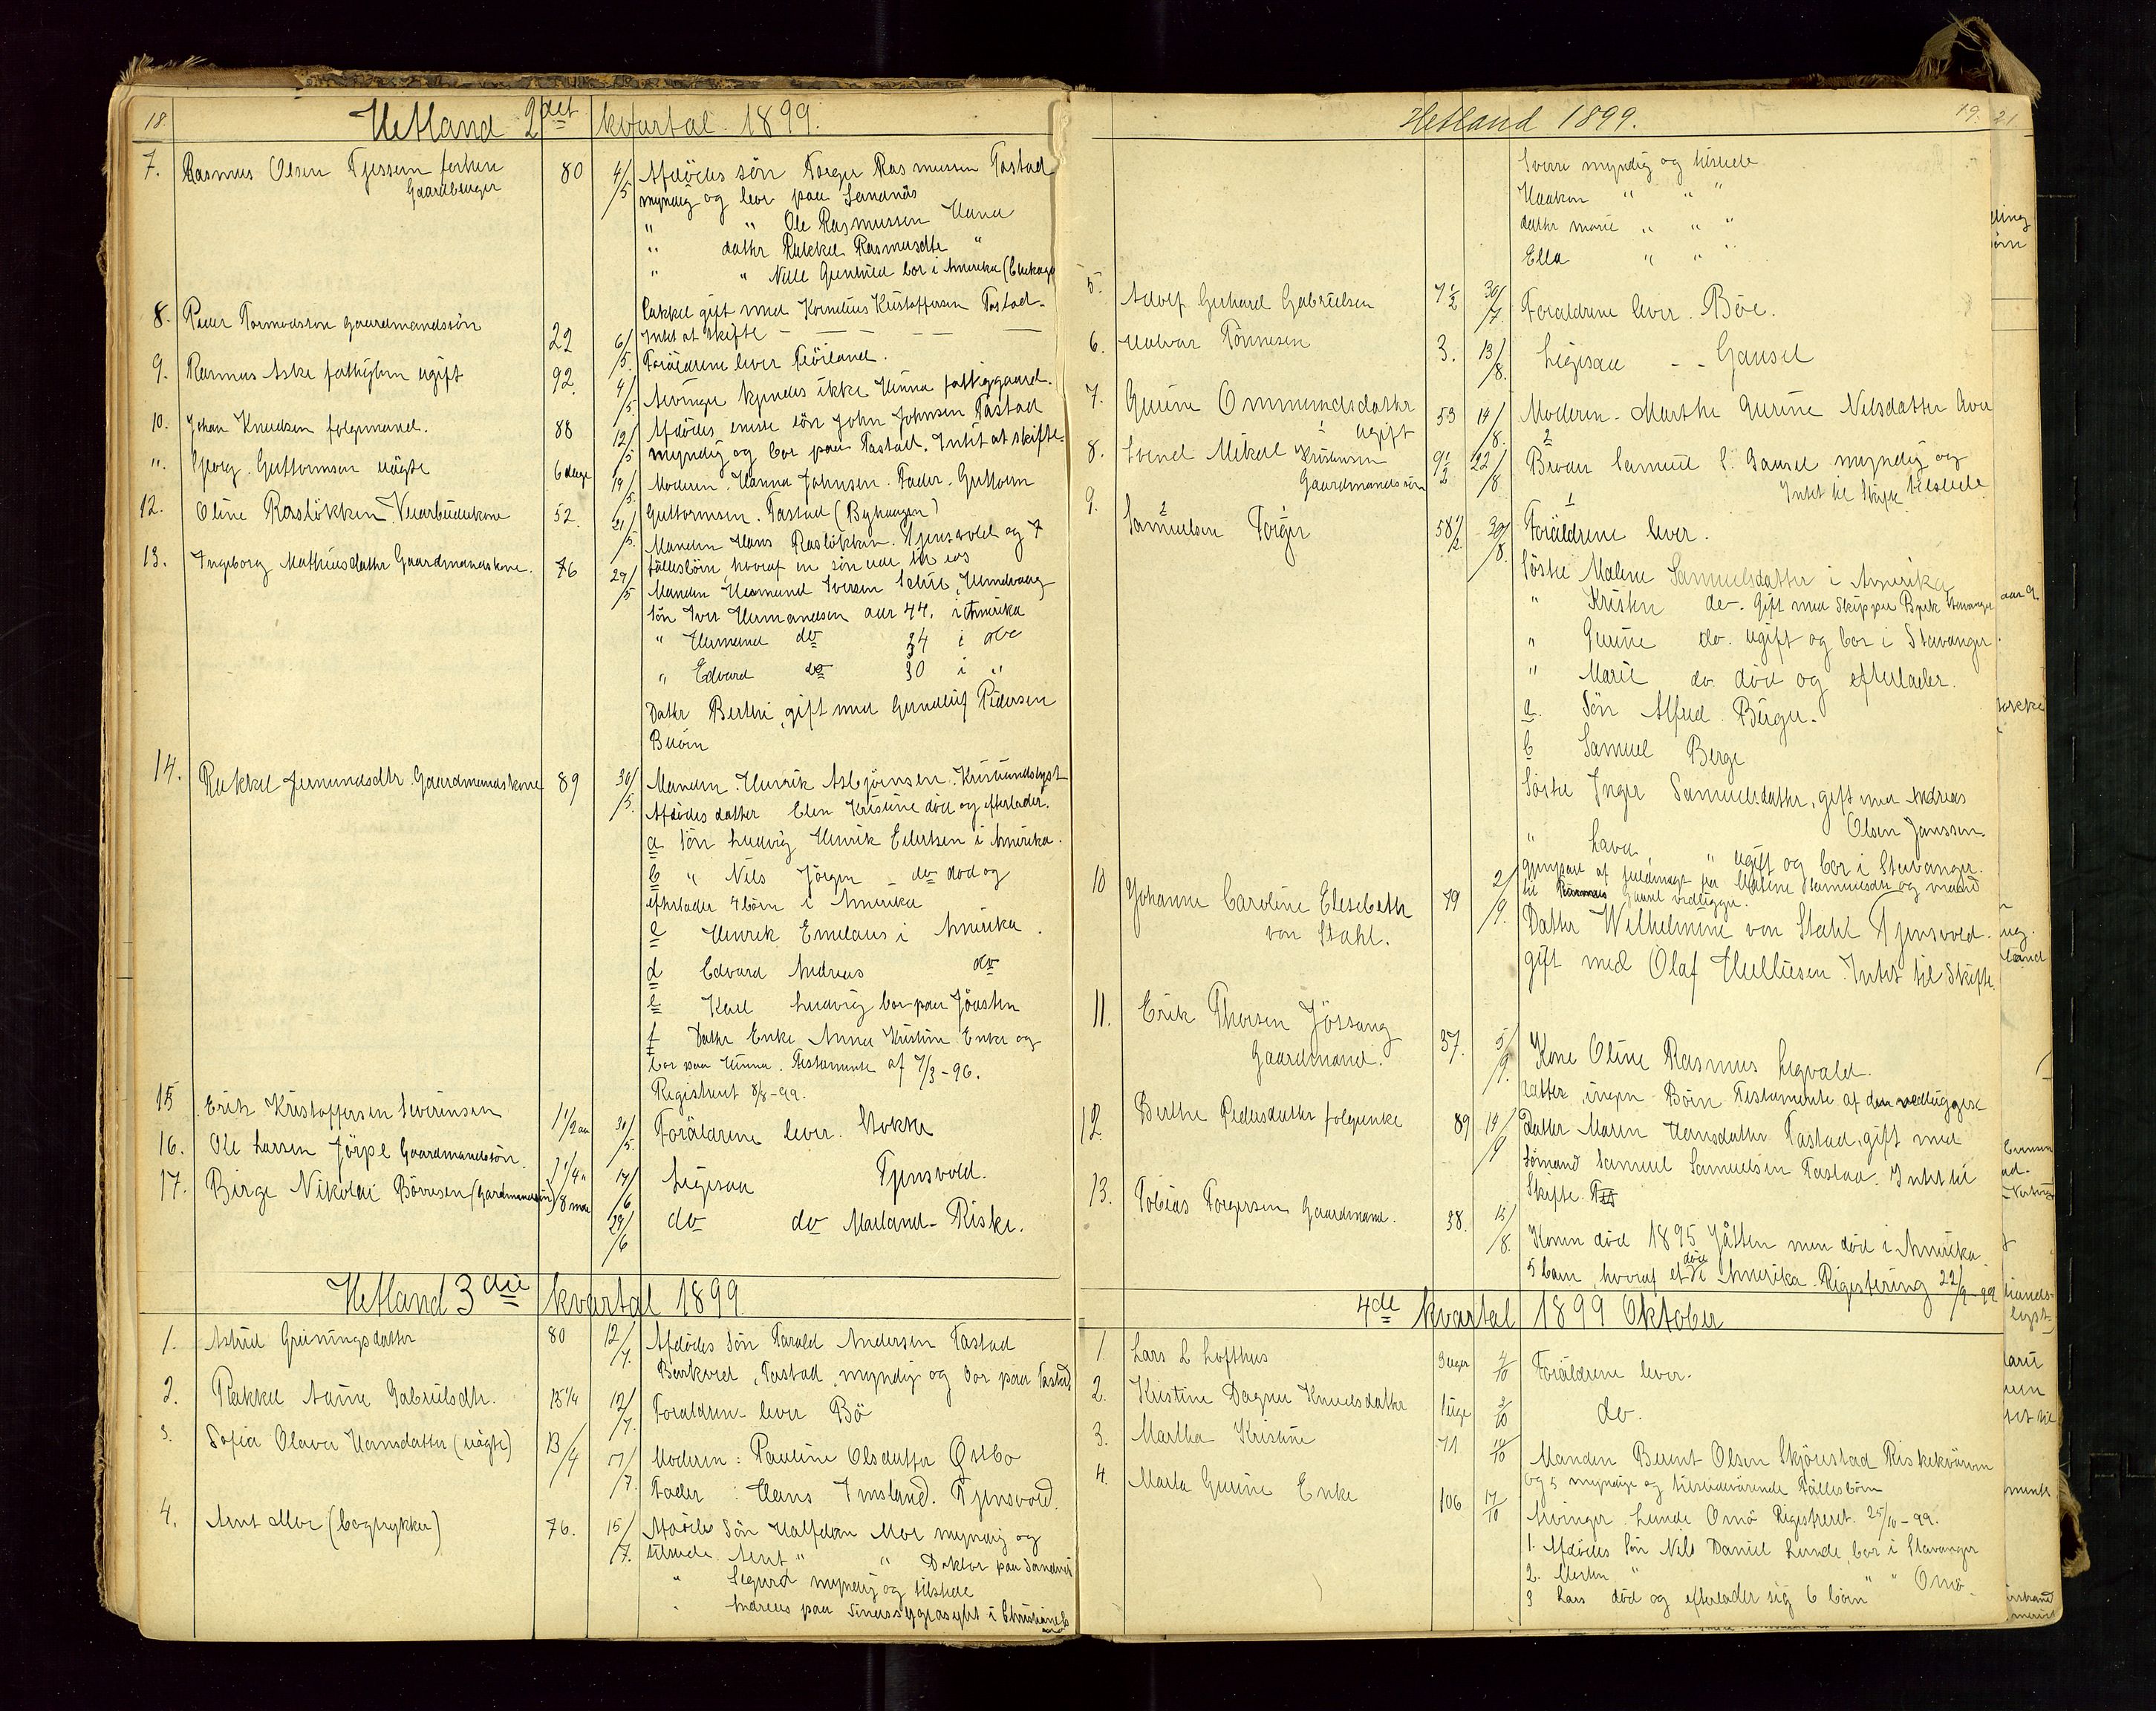 18.
Hetland 2det kvartal 1899.
7. Rasmus Olsen Tjessem forhen 80 4/5 Afdödes sön Torger Rasmussen Tastad
Gaardbruger myndig og bor paa Sandnäs
" " Ole Rasmussen Hana
" dattr Rakkel Rasmusdtr "
" " Nille Gunhild bor i Amerika (Chikago
Rakkel gift med Kornelius Kristoffersen Tastad.
8. Peder Tormodsson gaardmandssön 22 6/5 Intet at skifte
Foräldrene lever
9. Rasmus Aske fattiglem ugift 92. 4/5 Arvinger kjendes ikke Hinna fattiggaard.
10. Johan Knudsen folgemand. 88 12/5 Afdödes eneste sön John Johnsen Tastad
myndig og bor paa Tastad. Intet at skifte.
". Georg Guttormsen uägte 6 dage 19/5 Moderen. Hanna Johnsen. Fader. Guttorm
Guttormsen. Tastad (Byhaugen)
12. Oline Raslökken Veiarbeiderkone 52. 21/5 Manden Hans Raslökken. Tjensvold og 7
fällesbörn, hvoraf en sön
13. Ingeborg Mathiasdattr Gaardmandskone. 76 29/5 Manden Hermund Iversen
Sön Iver Hermandsen aar 44. i Amerika
" Hermund do 34 i do
" Edvard do 30 i "
Dattr Berthe, gift med Gundleif Pedersen
Buöen
14. Rakkel Jermundsdtr. Gaardmandskone 89 30/5 Manden. Henrik Asbjörnsen. Kristianslyst
Afdödes datter Elen Kristine död og efterlader.
a Sön Ludvig Henrik Eilertsen i Amerika.
b " Nils Jörgen - do död og
efterlader 4 börn i Amerika
c Henrik Emelaus i Amerika.
d Edvard Andreas do
e Karl Ludvig bor paa Jåasten
f Dattr Enke Anna Kristine Enke og
bor paa Hinna. Testamente af 7/3-96.
Registreret 8/8-99.
15 Erik Kristoffersen Severinsen 1 1/2 aar 30/5. Foräldrene lever. Stokke
16. Ole Larsen Jörpe Gaardmandssön. 1 1/4 " 14/6 Ligesaa Tjensvold.
17. Birge Nikolai Börresen (Gardmandssön) 8 mdr 29/6 do do Marland - Riske.
Hetland 3die kvartal 1899
1. Astrid Greiningsdatter 80 12/7. Afdödes Sön Tarald Andersen Tastad
, Tastad, myndig og bor paa Tastad
2. Rakkel Anna Gabrielsdtr. 15 1/4 12/7. Foraldren lever Bö
3. Sofia Olava Hansdatter (uägte) 13/4 7/7. Moderen: Pauline Olsdatter Østbo
Fader : Hans Imsland. Tjensvold.
4. Arnt Mor (bogtrykker) 76. 15/7. Afdödes Sön Halfdan Mor myndig og
tilstede. Arnt " " Doktor paa Sandnes
" Sigurd myndig og tilstede
" Andreas paa Sindssygeasylet i Christianssand
Hetland 1899. 19. 21
Sverre myndig og tilstede
Haakon " " "
dattr Marie " " "
Ella " " "
5. Adolf Gerhard Gabrielsen 7 1/2 30/7. Foraldrene lever. Böe.
6. Halvar Tönnesen 3. 13/8. Ligesaa - - Gausel
7. Gurine Ommundsdattr 53 14/8. Moderen - Marthe Gurine Nilsdatter
ugift
8. Svend Mikal Kristensen 9 1/2 22/8 Broder Samuel S. Gausel myndig og
Gaardmandssön Intet til Skifte tilstede
9. Samuelsen Torger 58 1/2. 30/8. Foräldrene lever.
Söster Malene Samuelsdatter i Amerika
" Kristin do. Gift med Skipper Bjerk Stavanger
" Gurine do. ugift og bor i Stavanger.
" Marie do. död og efterlader.
a. Sön Alfred Birger.
b Samuel Berge
Söster Inger Samuelsdatter, gift med Andreas
Olsen Janssen.
" Lava " ugift og bor i Stavanger.
Gjenpart af fuldmagt fra Malene Samuelsdtr og mand
til Rasmus Gausel vedligger.
10 Johanne Caroline Elesebeth 79 2/9. Datter Wilhelmine von Stahl Tjensvold.
von Stahl. gift med Olaf Helliesen. Intet til Skifte.
11. Erik Thorsen Jössang 37. 5/9. Kone Oline Rasmus
Gaardmand. datter, ingen Börn Testamente af vedligger
12. Berthe Pedersdattr folgenke 89 19/9 Datter Maren Hansdatter Tastad, gift med
Sömand Samuel Samuelsen Tastad. Intet til
Skifte.
13. Tobias Torgersen Gaardmand. 38. 15/8. Konen död 1895 Jåtten men död i Amerika
5 barn, hvoraf et död i Amerika. Rigestering 22/9-99
4de kvartal 1899 Oktober
1 Lars L Lofthus 3 uger 4/10 Foräldrene lever.
2. Kristine Dagner Knudsdattr 1 uge 2/10 do.
3. Martha Kristine 71 10/10 Manden Bernt Olsen Skjörestad Riskekvärnen
og 5 myndige og tilstedevärende Fällesbörn
4. Marta Gurine Enke 106 17/10 Arvinger Lunde Omö Rigestreret. 25/10-99.
1. Afdödes Sön Nils Daniel Lunde, bor i Stavanger
2. Martin " " " Omö.
3 Lars död og efterlader sig 6 börn